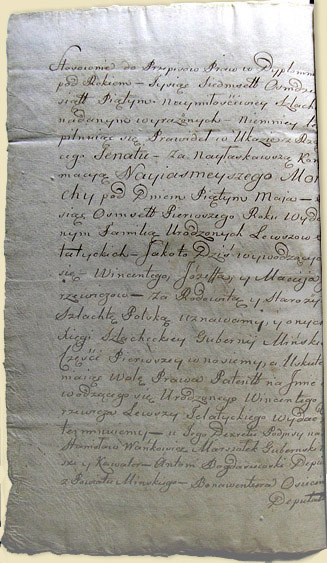 Stosownie do Przepisow Praw w Dyplomm
pod Rokiem – Tysiąc Siedmsett Osmdzie
siątt Piątym – Naymiłościwiey Szlach
nadanym wyrażonych – Niemniey do
pilnuiąc się Prawideł w Ukazie z Rzą
cego Senatu – za Naylaskawszą Kon
macyią Nayiasnieyszego Mon
chy pod Dniem Piątym Maja –
siąc Osmsett Pierwszego Roku wyd
nym Familią Urodzonych Lewszow
tałyckich – Jakoto Dziś wywodzącyc
się – Wincentego, Jozeffa, y Macieja
rzewiczow – za Rodowitą y Starozy
Szlachtę Polską uznawamy, y onych
Xięgi Szlacheckiey Gubernij Mińskie
Częsć Pierwszey wnosiemy, a Uskute
maiąc Wolę Prawa Patentt na Imie
wodzącego się Urodzonego Wincentego
rzewego Lewszy Tałatyckiego Wydać
terminuiemy – u Tego Dekretu Podpisy
Stanisław Wańkowicz Marszałek Gubernski
szy Kawaler – Antoni Bogdaszewski Depu
z Powiatu Mińskiego – Bonawentura
Deputat